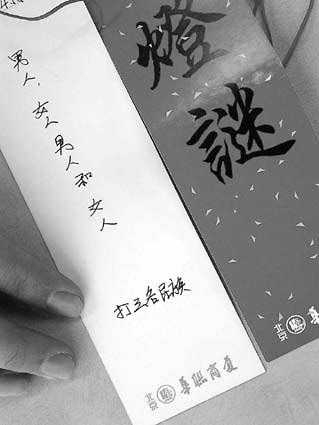 男人、女人男人和女人
打三名民族
北京 華联商厦
燈謎
北京 華